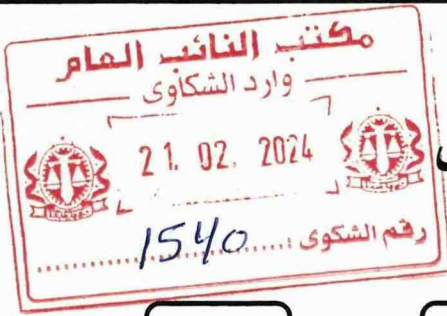 مكتب النائب العام
وارد الشكاوى
21. 02. 2024
رقم الشكوى : 1540